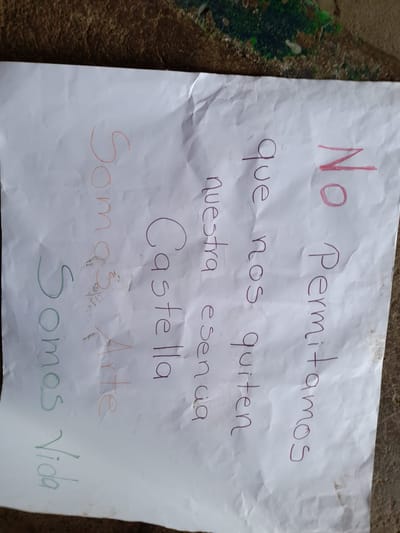 No permitamos
que nos quiten
nuestra esencia
Castella
Somos Arte
Somos Vida